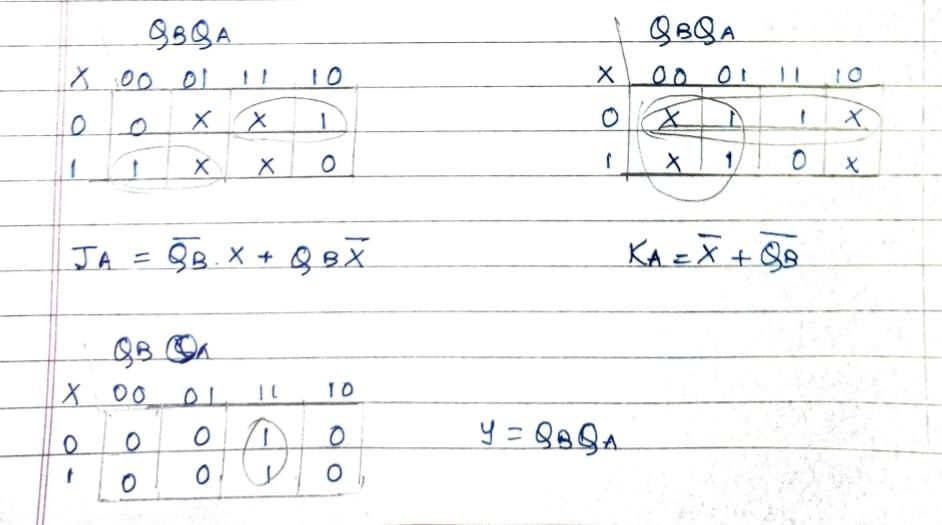 QBQA
X 00 01 11 10
0 0 X X 1
1 1 X X 0
QBQA
X 00 01 11 10
0 X 1 1 X
1 X 1 0 X
JA = Q̅B̅ . X + QB X̅
KA = X̅ + Q̅B̅
QB QA
X 00 01 11 10
0 0 0 1 0
1 0 0 1 0
Y = QBQA